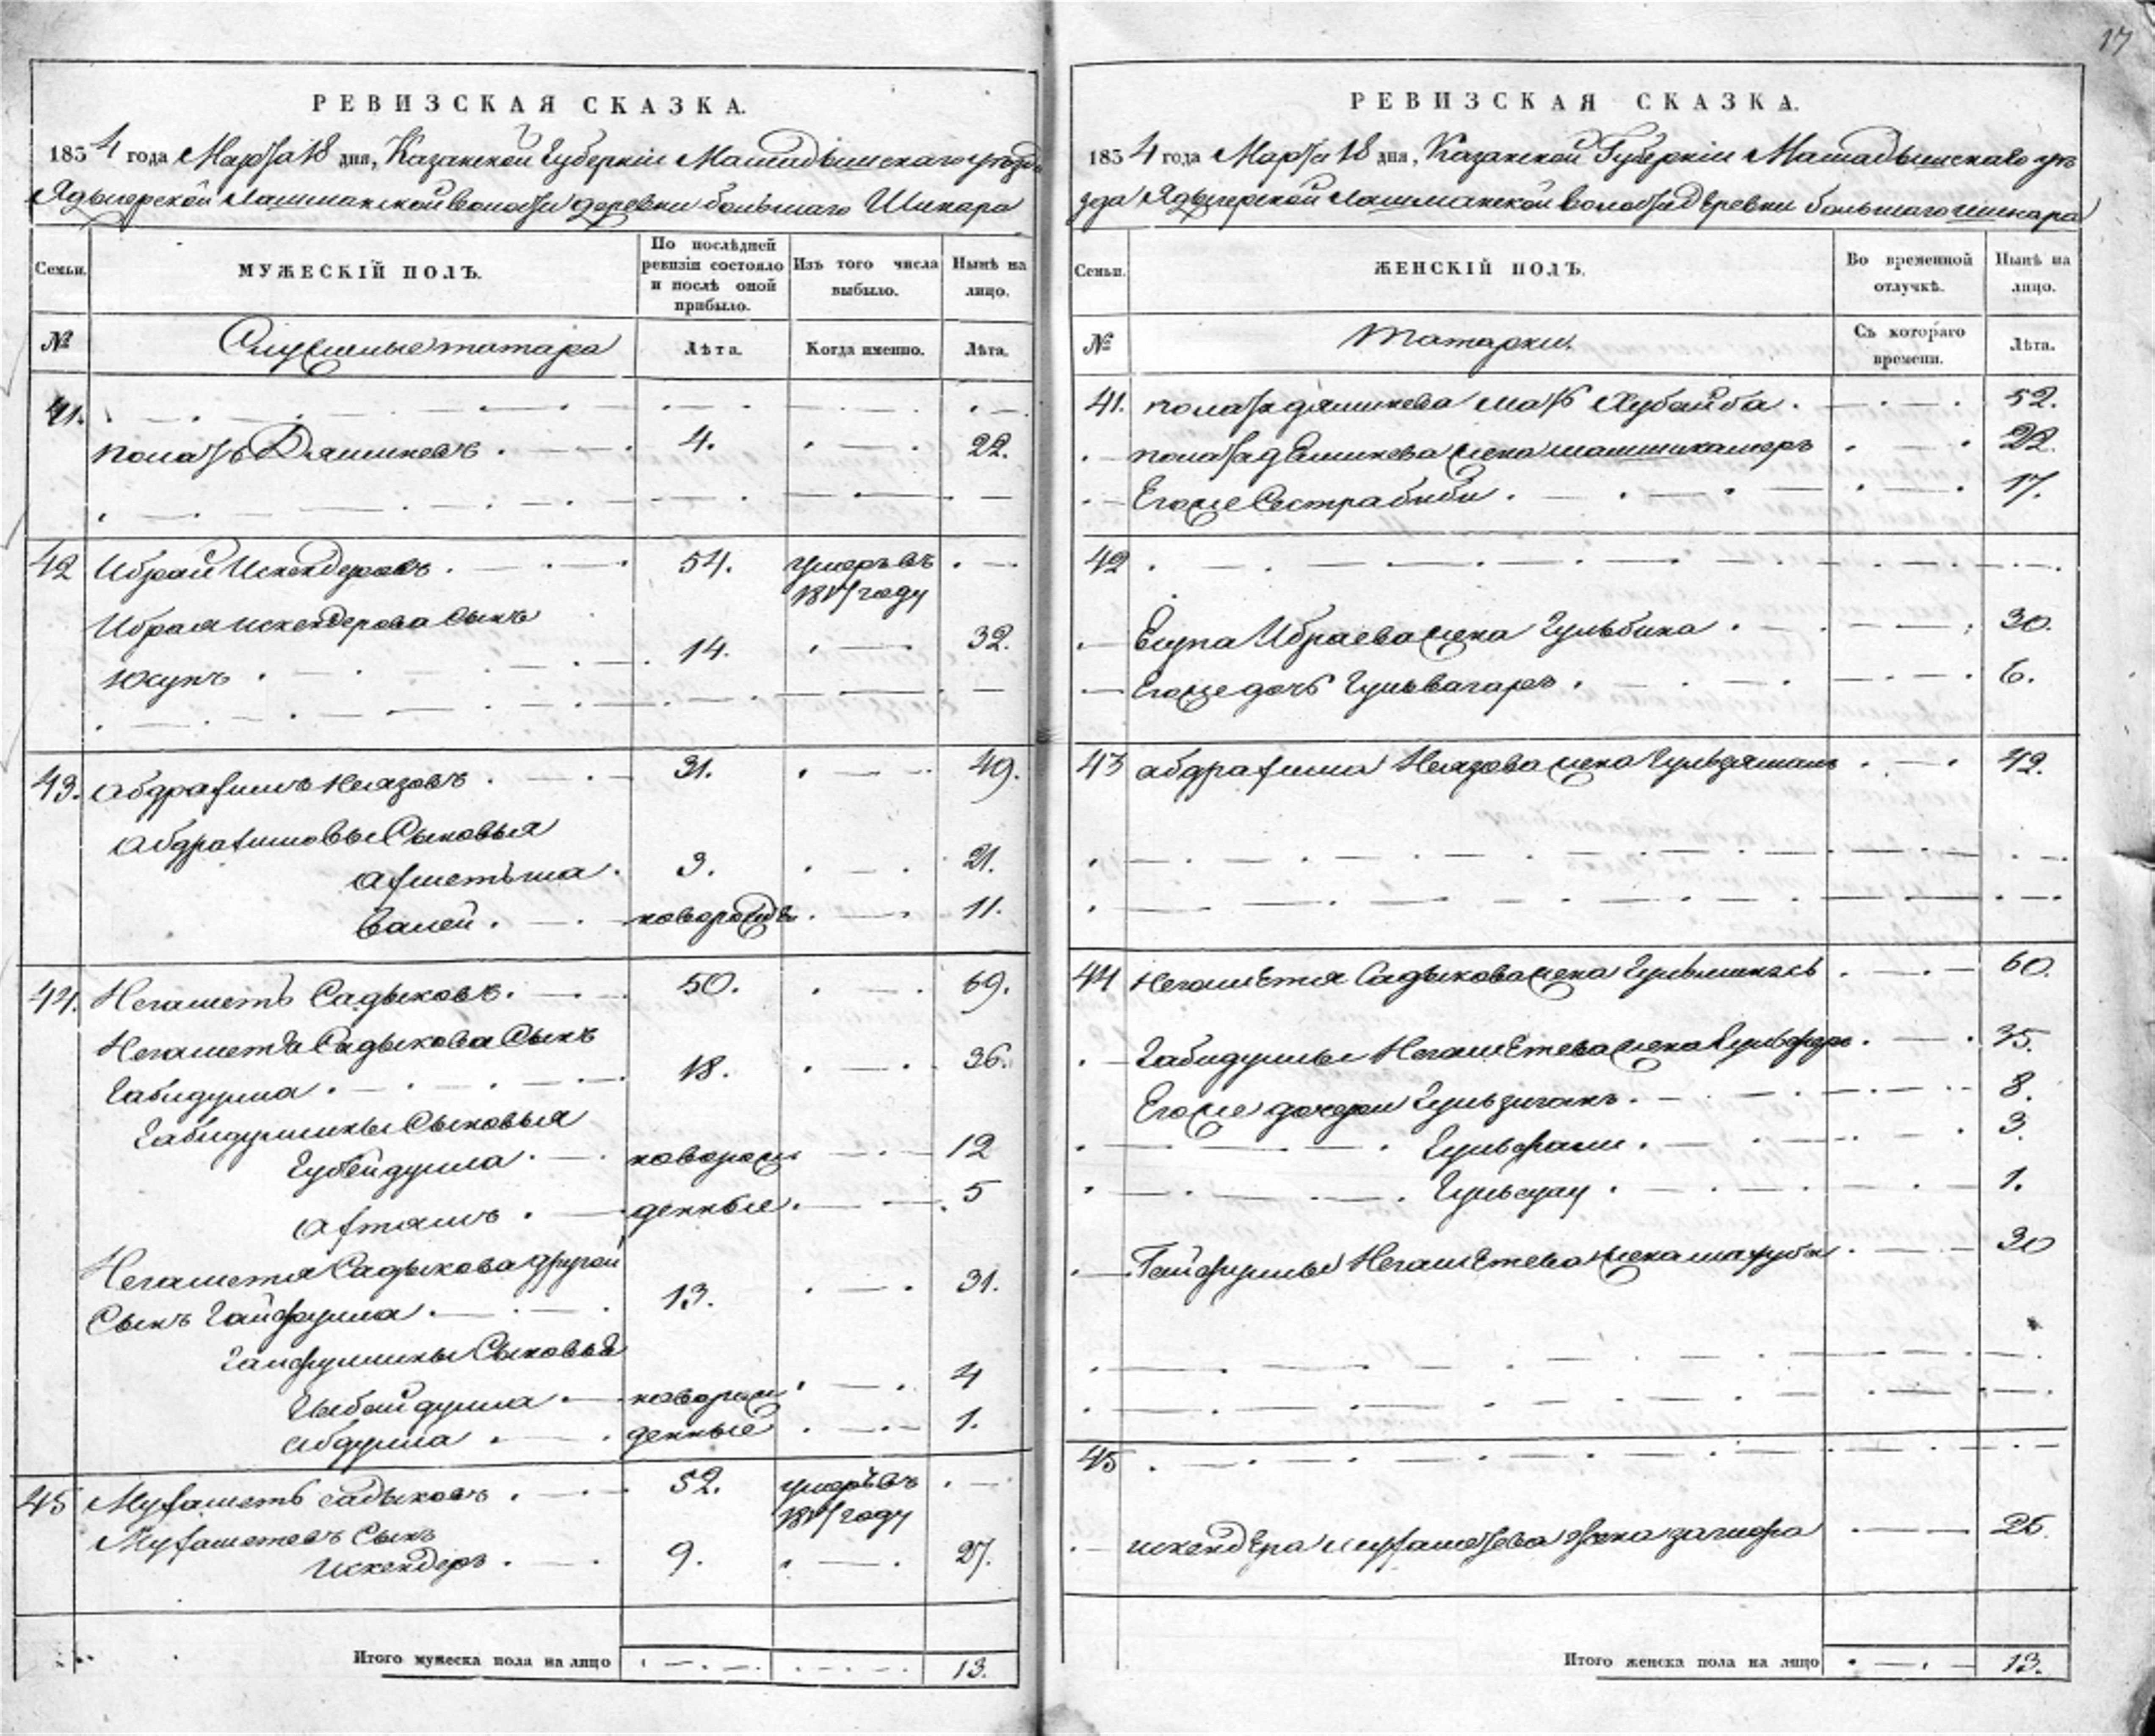 17
РЕВИЗСКАЯ СКАЗКА.
1834 года Марта 18 дня, Казанской Губернии Мамадышскаго уѣзда
Ядыгерской Лашманской волости деревни большаго Шинара
Семьи.
МУЖЕСКІЙ ПОЛЪ.
По послѣдней ревизіи состояло и послѣ оной прибыло.
Изъ того числа выбыло.
Нынѣ на лицо.
№
Служилые татара
Лѣта.
Когда именно.
Лѣта.
41.
полатъ Дѣямикевъ 4. 22.
42 Ибрай Искендеровъ 54. умеръ въ
году
Ибрая искендерова сынъ
Юкупъ 14. 32.
43. абдрахимъ Неязовъ 31. 49.
абдрахимовы Сыновья
ахметьша 3. 21.
Валей новорожд 11.
44. Негаметъ Садыковъ 50. 69.
Негаметя Садыкова Сынъ
Габидулла 18. 36.
Габидуллины Сыновья
Губейдулла новорож 12
Афтямъ денные 5
Негаметя Садыкова другой
Сынъ Гайфулла 13. 31.
Гайфуллины Сыновья
Гыбайдулла новорож 4
абдулла денные 1.
45 Мухаметъ садыковъ 52. умеръ въ
году
Мухаметевъ Сынъ
Искендеръ 9. 27.
Итого мужеска пола на лицо 13.
РЕВИЗСКАЯ СКАЗКА.
1834 года Марта 18 дня, Казанской Губерніи Мамадышскаго уѣ
зда Ядыгерской Лашманской волости Деревни большаго шинара
Семьи.
ЖЕНСКІЙ ПОЛЪ.
Во временной отлучкѣ.
Нынѣ на лицо.
№
Татарки.
Съ котораго времени.
Лѣта.
41. полата дямикева мать Хубайба 52.
полата дямикева жена 22.
Егоже Сестра биби 17.
42
Жена Гульбика 30.
Егоже дочь Гульвагаръ 6.
43 абдрахима Неязова жена Гульзямалъ 42.
44 Негаметя Садыкова жена 60.
Габидуллы Негаметева жена 35.
Егоже дочери Гульзиганъ 8.
3.
1.
Гайфуллы Негаметева жена махуба 30
45
искендера мухаметева жена загифа 25.
Итого женска пола на лицо 13.